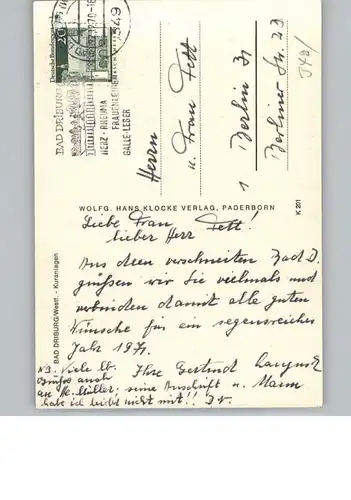 Deutsche Bundespost
20
3490
BAD DRIBURG
HERZ-RHEUMA
FRAUENLEIDEN
GALLE-LEBER
Herrn
u. Frau Fett
1 Berlin 31
Berliner Str. 23
WOLFG. HANS KLOCKE VERLAG, PADERBORN
K 201
BAD DRIBURG/Westf. - Kuranlagen
Liebe Frau Fett!
lieber Herr
Aus dem verschneiten Bad D.
grüßen wir Sie vielmals und
verbinden damit alle guten
Wünsche für ein segensreiches
Jahr 1971.
Ihre Gertrud
NB. Viele lb.
Grüße auch
an H. Müller; seine Anschrift u. Mann
habe ich leider nicht mit!!